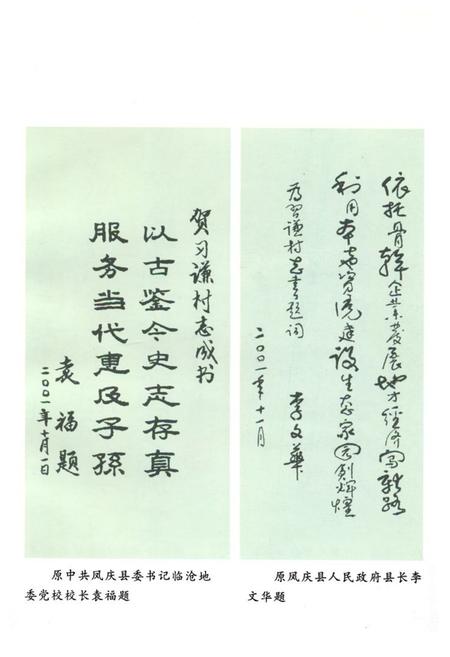 贺习谦村志成书
以古鉴今史志存真
服务当代惠及子孫
袁福题
二00一年十月一日
依托骨幹企业发展地方经济富裕路
利用本地资源建设生态家园创辉煌
为习谦村志书题词
李文华
二00一年十一月
原中共凤庆县委书记临沧地
委党校校长袁福题
原凤庆县人民政府县长李
文华题